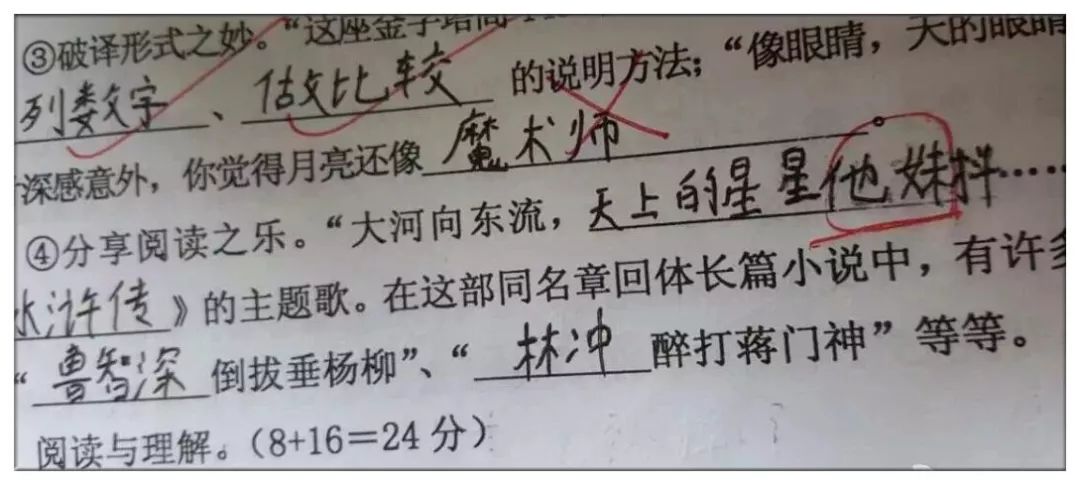 ③破译形式之妙。“这座金字塔高
列数字、做比较的说明方法；“像眼睛，天的眼睛
深感意外，你觉得月亮还像魔术师。
④分享阅读之乐。“大河向东流，天上的星星他妹抖……
水浒传》的主题歌。在这部同名章回体长篇小说中，有许多
“鲁智深倒拔垂杨柳”、“林冲醉打蒋门神”等等。
阅读与理解。（8+16＝24分）